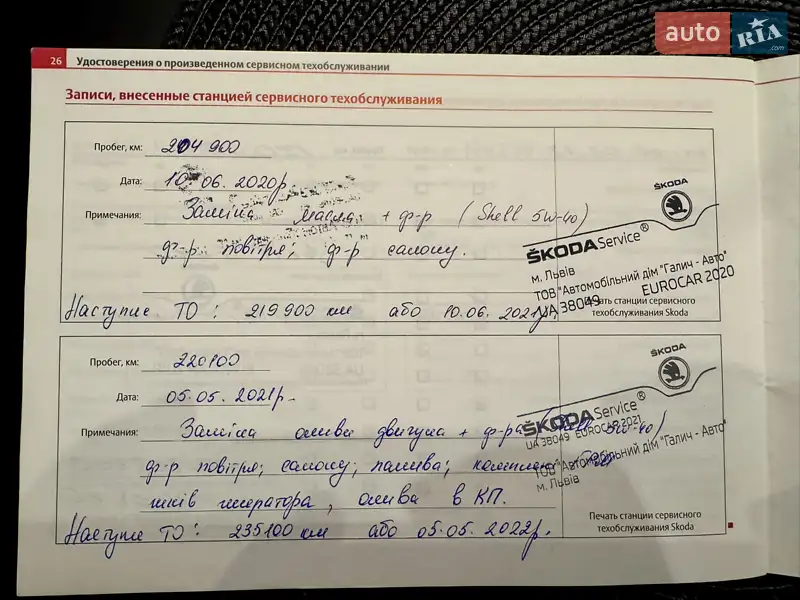 auto RIA .com
26 Удостоверения о произведенном сервисном техобслуживании
Записи, внесенные станцией сервисного техобслуживания
Пробег, км: 204 900
Дата: 10.06.2020р.
Примечания: Заміна масла + ф-р (Shell 5W-40)
ф-р повітря; ф-р салону.
ŠKODA
ŠKODA Service®
м. Львів
ТОВ "Автомобільний дім "Галич - Авто"
UA 38049 EUROCAR 2020
Наступне ТО: 219 900 км або 10.06.2021
Печать станции сервисного
техобслуживания Skoda
Пробег, км: 220100
Дата: 05.05.2021р.
Примечания: Заміна оливи двигуна + ф-ра 5W-40)
ф-р повітря; салону; палива;
генератора, олива в КП.
ŠKODA
ŠKODA Service®
UA 38049 EUROCAR 2021
ТОВ "Автомобільний дім "Галич - Авто"
м. Львів
Наступне ТО: 235100 км або 05.05.2022р.
Печать станции сервисного
техобслуживания Skoda